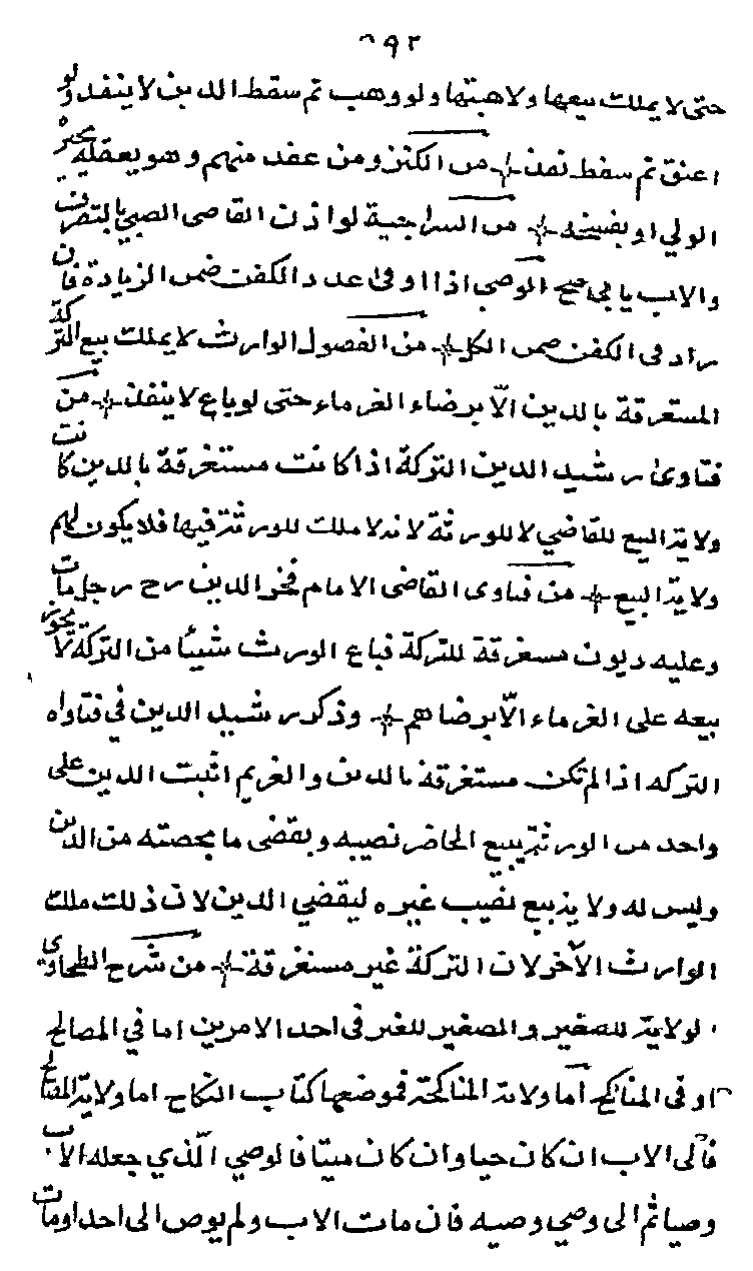 ٨٩٢
حتى لا يملك بيعها ولا هبتها ولو وهب ثم سقط الدين لا ينفذ ولو
اعتق ثم سقط نفذ من الكنز ومن عقد منهم وهو يعقله يجيزه
الولي او يفسخه من السراجية لو اذن القاضى الصبي بالتصرف
والاب يابى صح الوصي اذا زاد فى عدد الكفن ضمن الزيادة فان
زاد فى الكفن ضمن الكل من الفصول الوارث لا يملك بيع التركة
المستغرقة بالدين الّا برضاء الغرماء حتى لو باع لا ينفذ من
فتاوى رشيد الدين التركة اذا كانت مستغرقة بالدين كانت
ولاية البيع للقاضي لا للورثة لانه لا ملك للورثة فيها فلا يكون لهم
ولاية البيع من فتاوى القاضى الامام فخر الدين رح رجل مات
وعليه ديون مستغرقة للتركة فباع الورث شيئا من التركة لا يجوز
بيعه على الغرماء الّا برضاهم وذكر رشيد الدين في فتاواه
التركه اذا لم تكن مستغرقة بالدين والغريم اثبت الدين على
واحد من الورثة يبيع الحاضر نصيبه ويقضى ما يحصته من الدين
وليس له ولاية بيع نصيب غيره ليقضي الدين لان ذلك ملك
الوارث الآخر لان التركة غير مستغرقة من شرح الطحاوي
لولاية للصغير والصغير للغير فى احد الامرين اما في المصالح
او فى المناكح اما ولاية المناكحة فموضعها كتاب النكاح اما ولاية المصالح
فالى الاب ان كان حيا وان كان ميتا فالوصي الّذي جعله الاب
وصيا ثم الى وصي وصيه فان مات الاب ولم يوص الى احد او مات